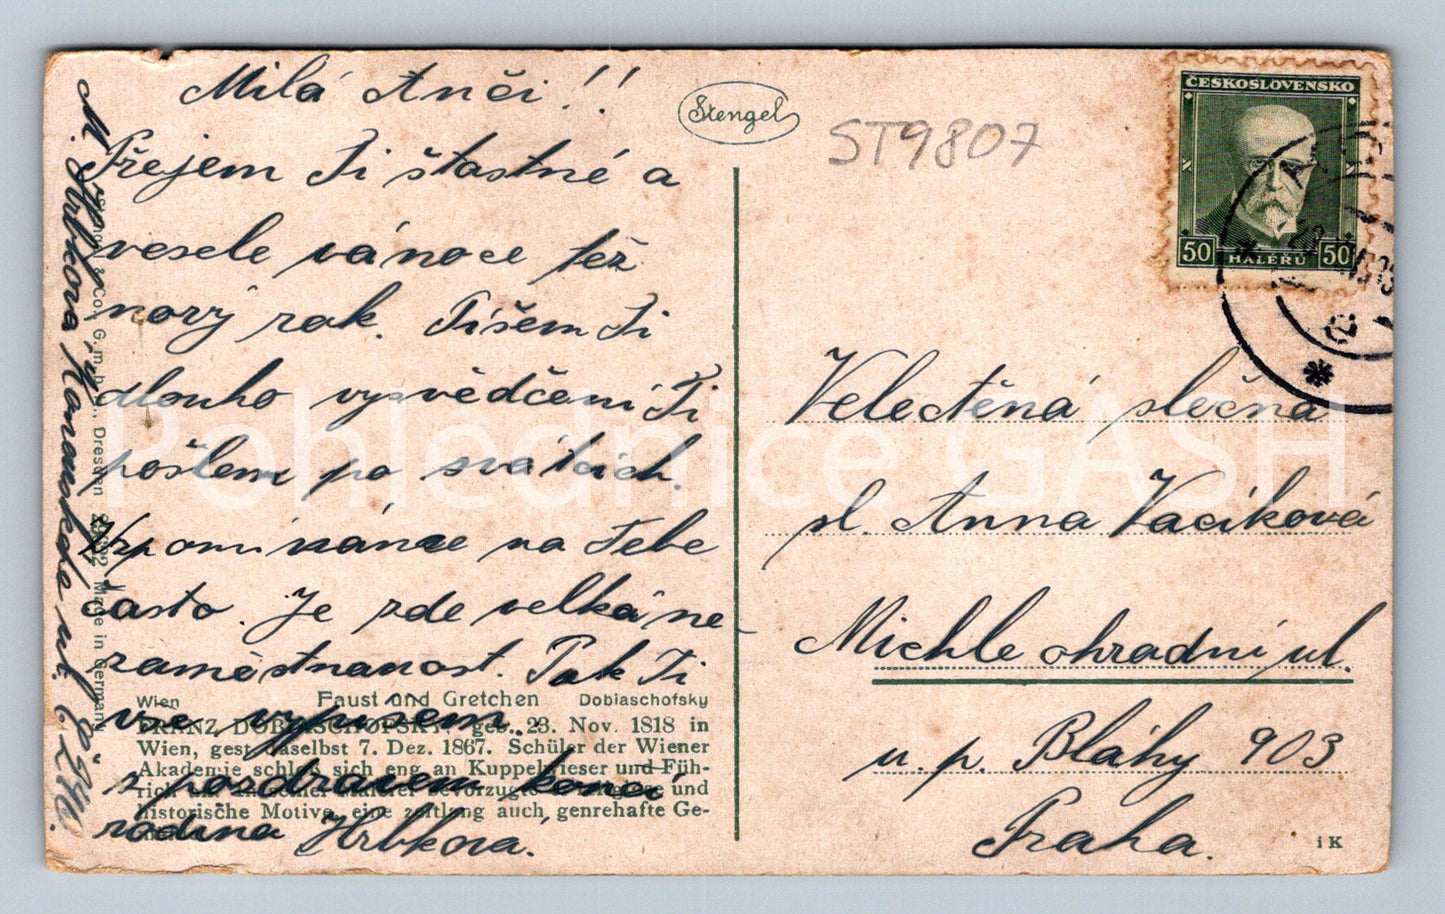 Milá Anči!!
Přejem Ti šťastné a
vesele vánoce též
nový rok. Píšem Ti
dlouho vysvědčení Ti
pošlem po svátcich.
Vzpomínáme na Tebe
často. Je zde velká ne-
zaměstnanost. Pak Ti
vse vypisem.
s pozdravem končí
rodina Hrbkova.
Stengel
ST9807
ČESKOSLOVENSKO
50 HALÉŘŮ 50
Velectěná slečna
sl. Anna Vacíková
Michle ohradní ul.
u. p. Bláhy 903
Praha.
Wien Faust und Gretchen Dobiaschofsky
FRANZ DOBIASCHOFSKY, geb. 23. Nov. 1818 in
Wien, gest. daselbst 7. Dez. 1867. Schüler der Wiener
Akademie schloß sich eng an Kuppelwieser und Füh-
rich und
historische Motive, eine zeitlang auch genrehafte Ge-
i K
Stengel & Co., G. m. b. H., Dresden Made in Germany
Hrbkova
Pohlednice GASH